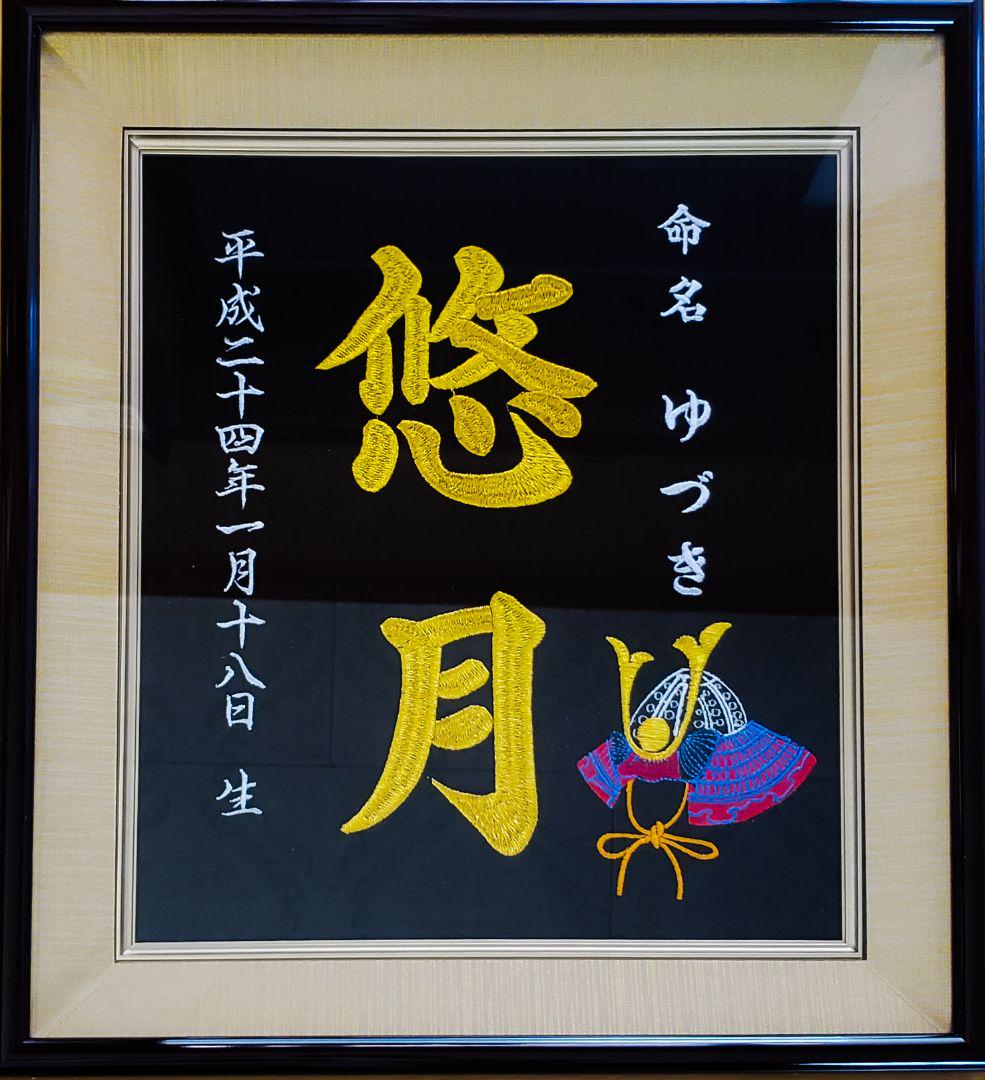 命名 ゆづき
悠月
平成二十四年一月十八日 生